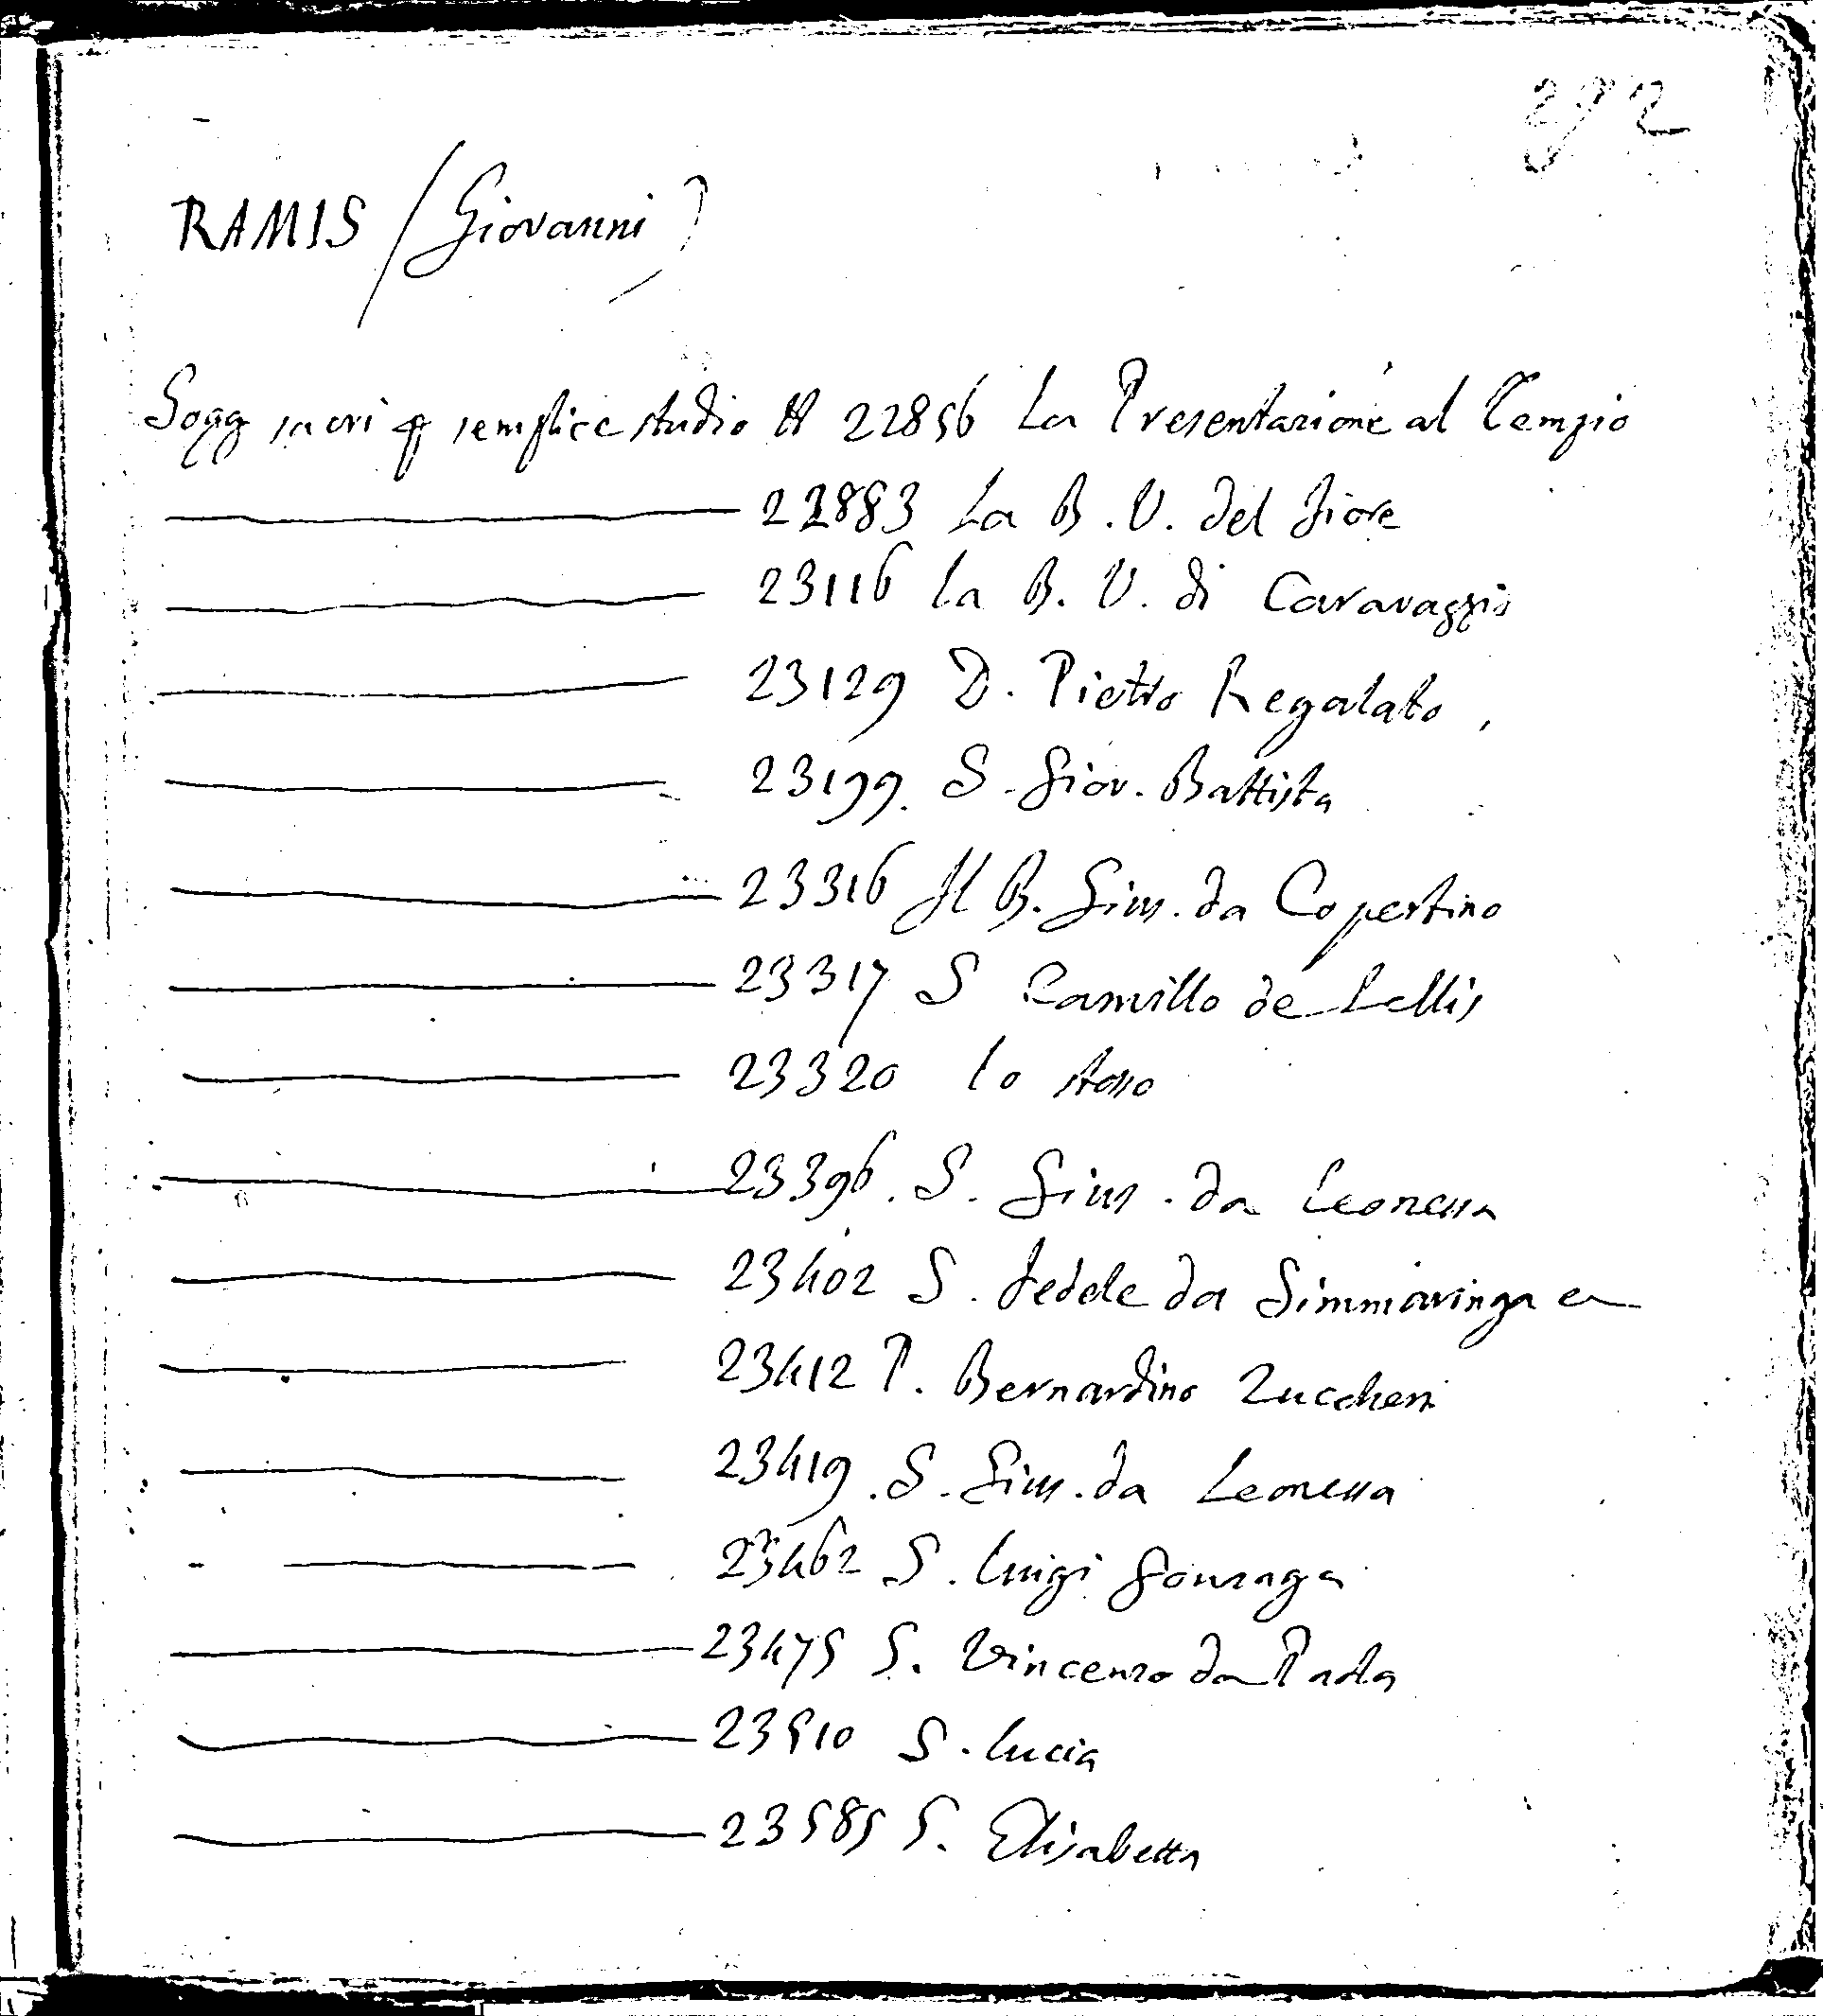 292
RAMIS (Giovanni)
Sogg sacri p semplice studio N 22856 La Presentazione al Tempio
22883 La B. V. del fiore
23116 la B. V. di Caravaggio
23129 D. Pietro Regalato
23199. S. Giov. Battista
23316 Il B. Gius. da Copertino
23317 S Camillo de Lellis
23320 lo stesso
23396. S. Gius. da Leonessa
23402 S. Fedele da Simmaringa
23412 P. Bernardino Zuccheri
23419. S. Gius. da Leonessa
23462 S. Luigi Gonzaga
23475 S. Vincenzo da Paola
23510 S. Lucia
23585 S. Elisabetta